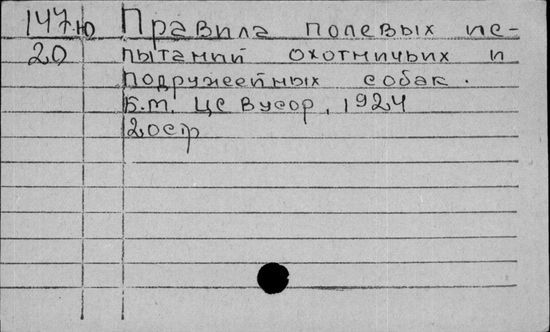 147.ю Правила полевых ис-
20 пытаний охотничьих и
подружейных собак.
Б.м. Цс Вусор, 1924
20стр